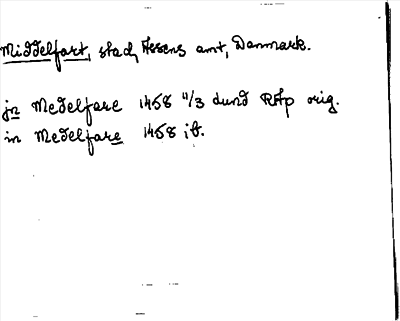 Middelfart, stad, Assens amt, Danmark.
jn Medelfare 1458 11/3 dund RAp orig.
in Medelfare 1458 ib.